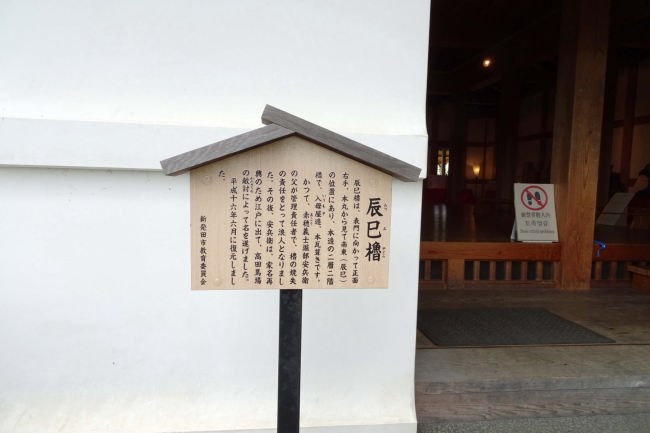 辰巳櫓
たつ み やぐら
辰巳櫓は、表門に向かって正面
右手、本丸から見て南東（辰巳）
の位置にあり、木造の二層二階
櫓で、入母屋造、本瓦葺きです。
かつて、赤穂義士堀部安兵衛
の父が管理責任者で、櫓の焼失
の責任をとって浪人となりまし
た。その後、安兵衛は、家名再
興のため江戸に出て、高田馬場
の敵討によって名を遂げました。
平成十六年六月に復元しまし
た。
新発田市教育委員会